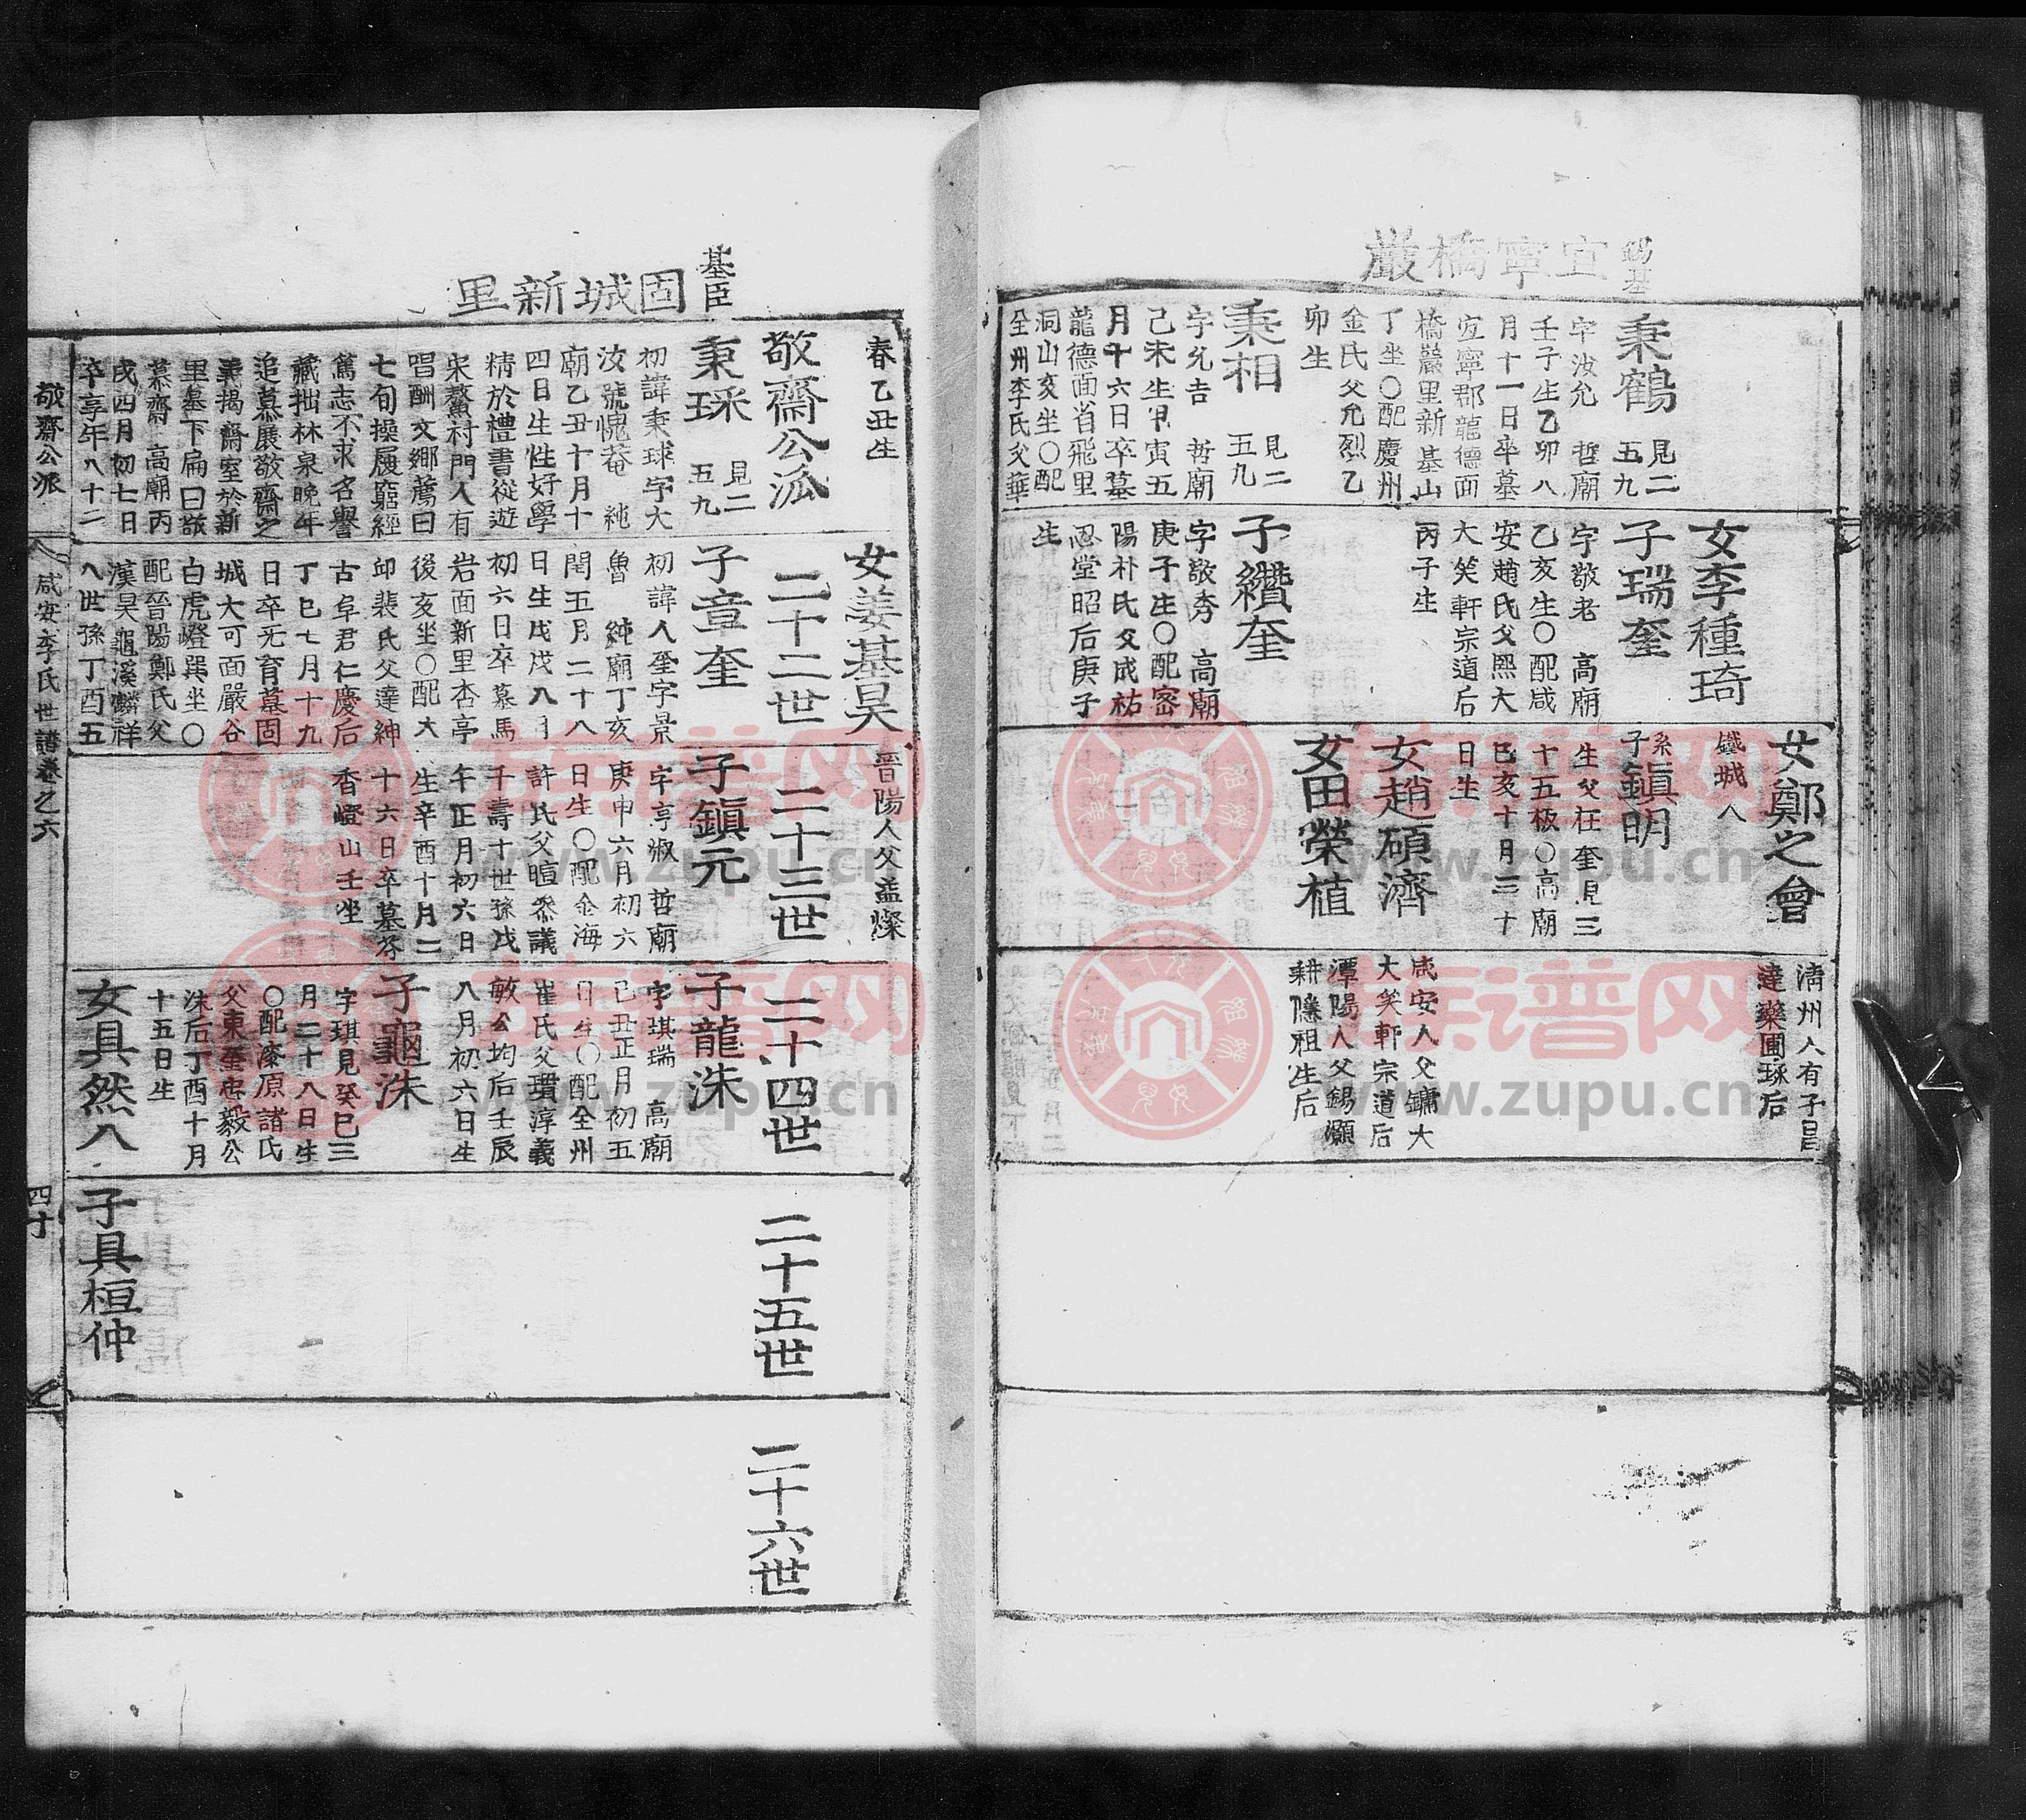 錫基
宜寧橋巖
秉鶴 見二五九
字汝允 哲廟
壬子生乙卯八
月十一日卒墓
宜寧郡龍德面
橋巖里新基山
丁坐〇配慶州
金氏父允烈乙
卯生
秉相 見二五九
字允吉 哲廟
己未生甲寅五
月十六日卒墓
龍德面省飛里
洞山亥坐〇配
全州李氏父華
女李種琦
子瑞奎
字敬老 高廟
乙亥生〇配咸
安趙氏父熙大
大笑軒宗道后
丙子生
子纘奎
字敬秀 高廟
庚子生〇配密
陽朴氏父成祐
忍堂昭后庚子
生
女鄭之會
鐵城人
系子鎭明
生父在奎見三
十五板〇高廟
己亥十月三十
日生
女趙碩濟
女田榮植
淸州人有子昌
達藥圃琢后
咸安人父鏞大
大笑軒宗道后
潭陽人父錫灝
耕隱祖生后
基臣
固城新里
春乙丑生
敬齋公派
秉琜 見二五九
初諱秉球字大
汝號愧菴 純
廟乙丑十月十
四日生性好學
精於禮書從遊
宋鰲村門人有
唱酬文鄕薦曰
七旬操履窮經
篤志不求名譽
藏拙林泉晩年
追慕展敬齋之
義揭齋室於新
里墓下扁曰敬
慕齋 高廟丙
戌四月初七日
卒享年八十二
女姜基昊
二十二世
子章奎
初諱人奎字景
魯 純廟丁亥
閏五月二十八
日生戊戌八月
初六日卒墓馬
岩面新里杏亭
後亥坐〇配大
邱裴氏父達紳
古阜君仁慶后
丁巳七月十九
日卒无育墓固
城大可面嚴谷
白虎嶝巽坐〇
配晉陽鄭氏父
漢昊龜溪麟祥
八世孫丁酉五
晉陽人父益燦
二十三世
子鎭元
字亨淑 哲廟
庚申六月初六
日生〇配金海
許氏父暄叅議
千壽十世孫戊
午正月初六日
生辛酉十月二
十六日卒墓芬
香嶝山壬坐
二十四世
子龍洙
字琪瑞 高廟
己丑正月初五
日生〇配全州
崔氏父瓚淳義
敏公均后壬辰
八月初六日生
子龜洙
字琪見癸巳三
月二十八日生
〇配漆原諸氏
父東奎忠毅公
洙后丁酉十月
十五日生
女具然八
二十五世
子具桓仲
二十六世
敬齋公派 咸安李氏世譜卷之六 四十
族谱网 www.zupu.cn
族谱网 www.zupu.cn
族谱网 www.zupu.cn
族谱网 www.zupu.cn